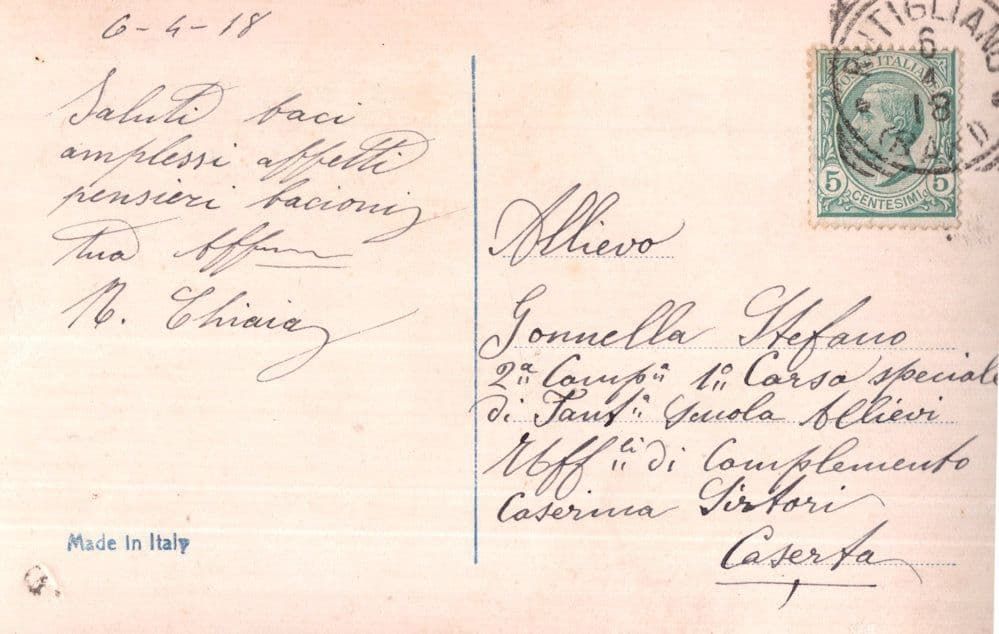 6-4-18
Saluti baci
amplessi affetti
pensieri bacioni
tua Aff
N. Chiaia
Made in Italy
RUTIGLIANO
6
4
18
(BARI)
POSTE ITALIANE
5 5
CENTESIMI
Allievo
Gonnella Stefano
2ª Compª 1º Corso speciale
di Fantª Scuola Allievi
Uffli di Complemento
Caserma Sirtori
Caserta